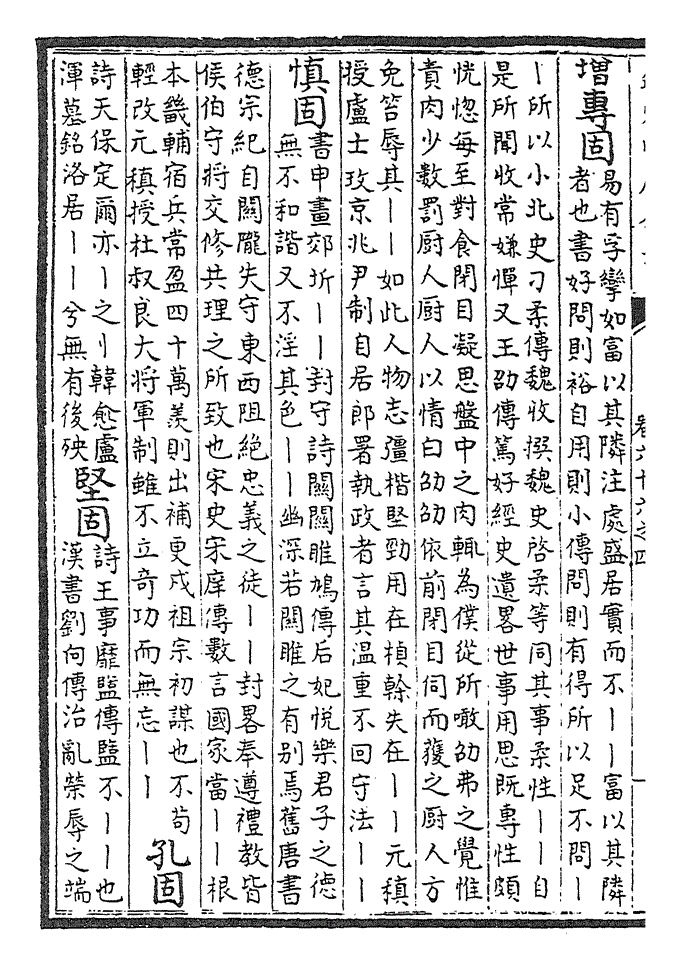 增專固
易有孚攣如富以其隣注處盛居實而不丨丨富以其隣
者也書好問則裕自用則小傳問則有得所以足不問丨
丨所以小北史刁柔傳魏收撰魏史啓柔等同其事柔性丨丨自
是所聞收常嫌憚又王劭傳篤好經史遺畧世事用思既專性頗
恍惚每至對食閉目凝思盤中之肉輒為僕從所噉劭弗之覺惟
責肉少數罰厨人厨人以情白劭劭依前閉目伺而獲之厨人方
免笞辱其丨丨如此人物志彊楷堅勁用在楨榦失在丨丨元稹
授盧士玫京兆尹制自居郎署執政者言其温重不回守法丨丨
慎固
書申畫郊圻丨丨封守詩關關雎鳩傳后妃悦樂君子之德
無不和諧又不淫其色丨丨幽深若關雎之有别焉舊唐書
德宗紀自關隴失守東西阻絶忠義之徒丨丨封畧奉遵禮教皆
侯伯守將交修共理之所致也宋史宋庠傳數言國家當丨丨根
本畿輔宿兵常盈四十萬羨則出補更戍祖宗初謀也不苟
輕改元稹授杜叔良大將軍制雖不立奇功而無忘丨丨
孔固
詩天保定爾亦丨之刂韓愈盧
渾墓銘洛居丨丨兮無有後殃
堅固
詩王事靡盬傳盬不丨丨也
漢書劉向傳治亂榮辱之端
卷六十六之四